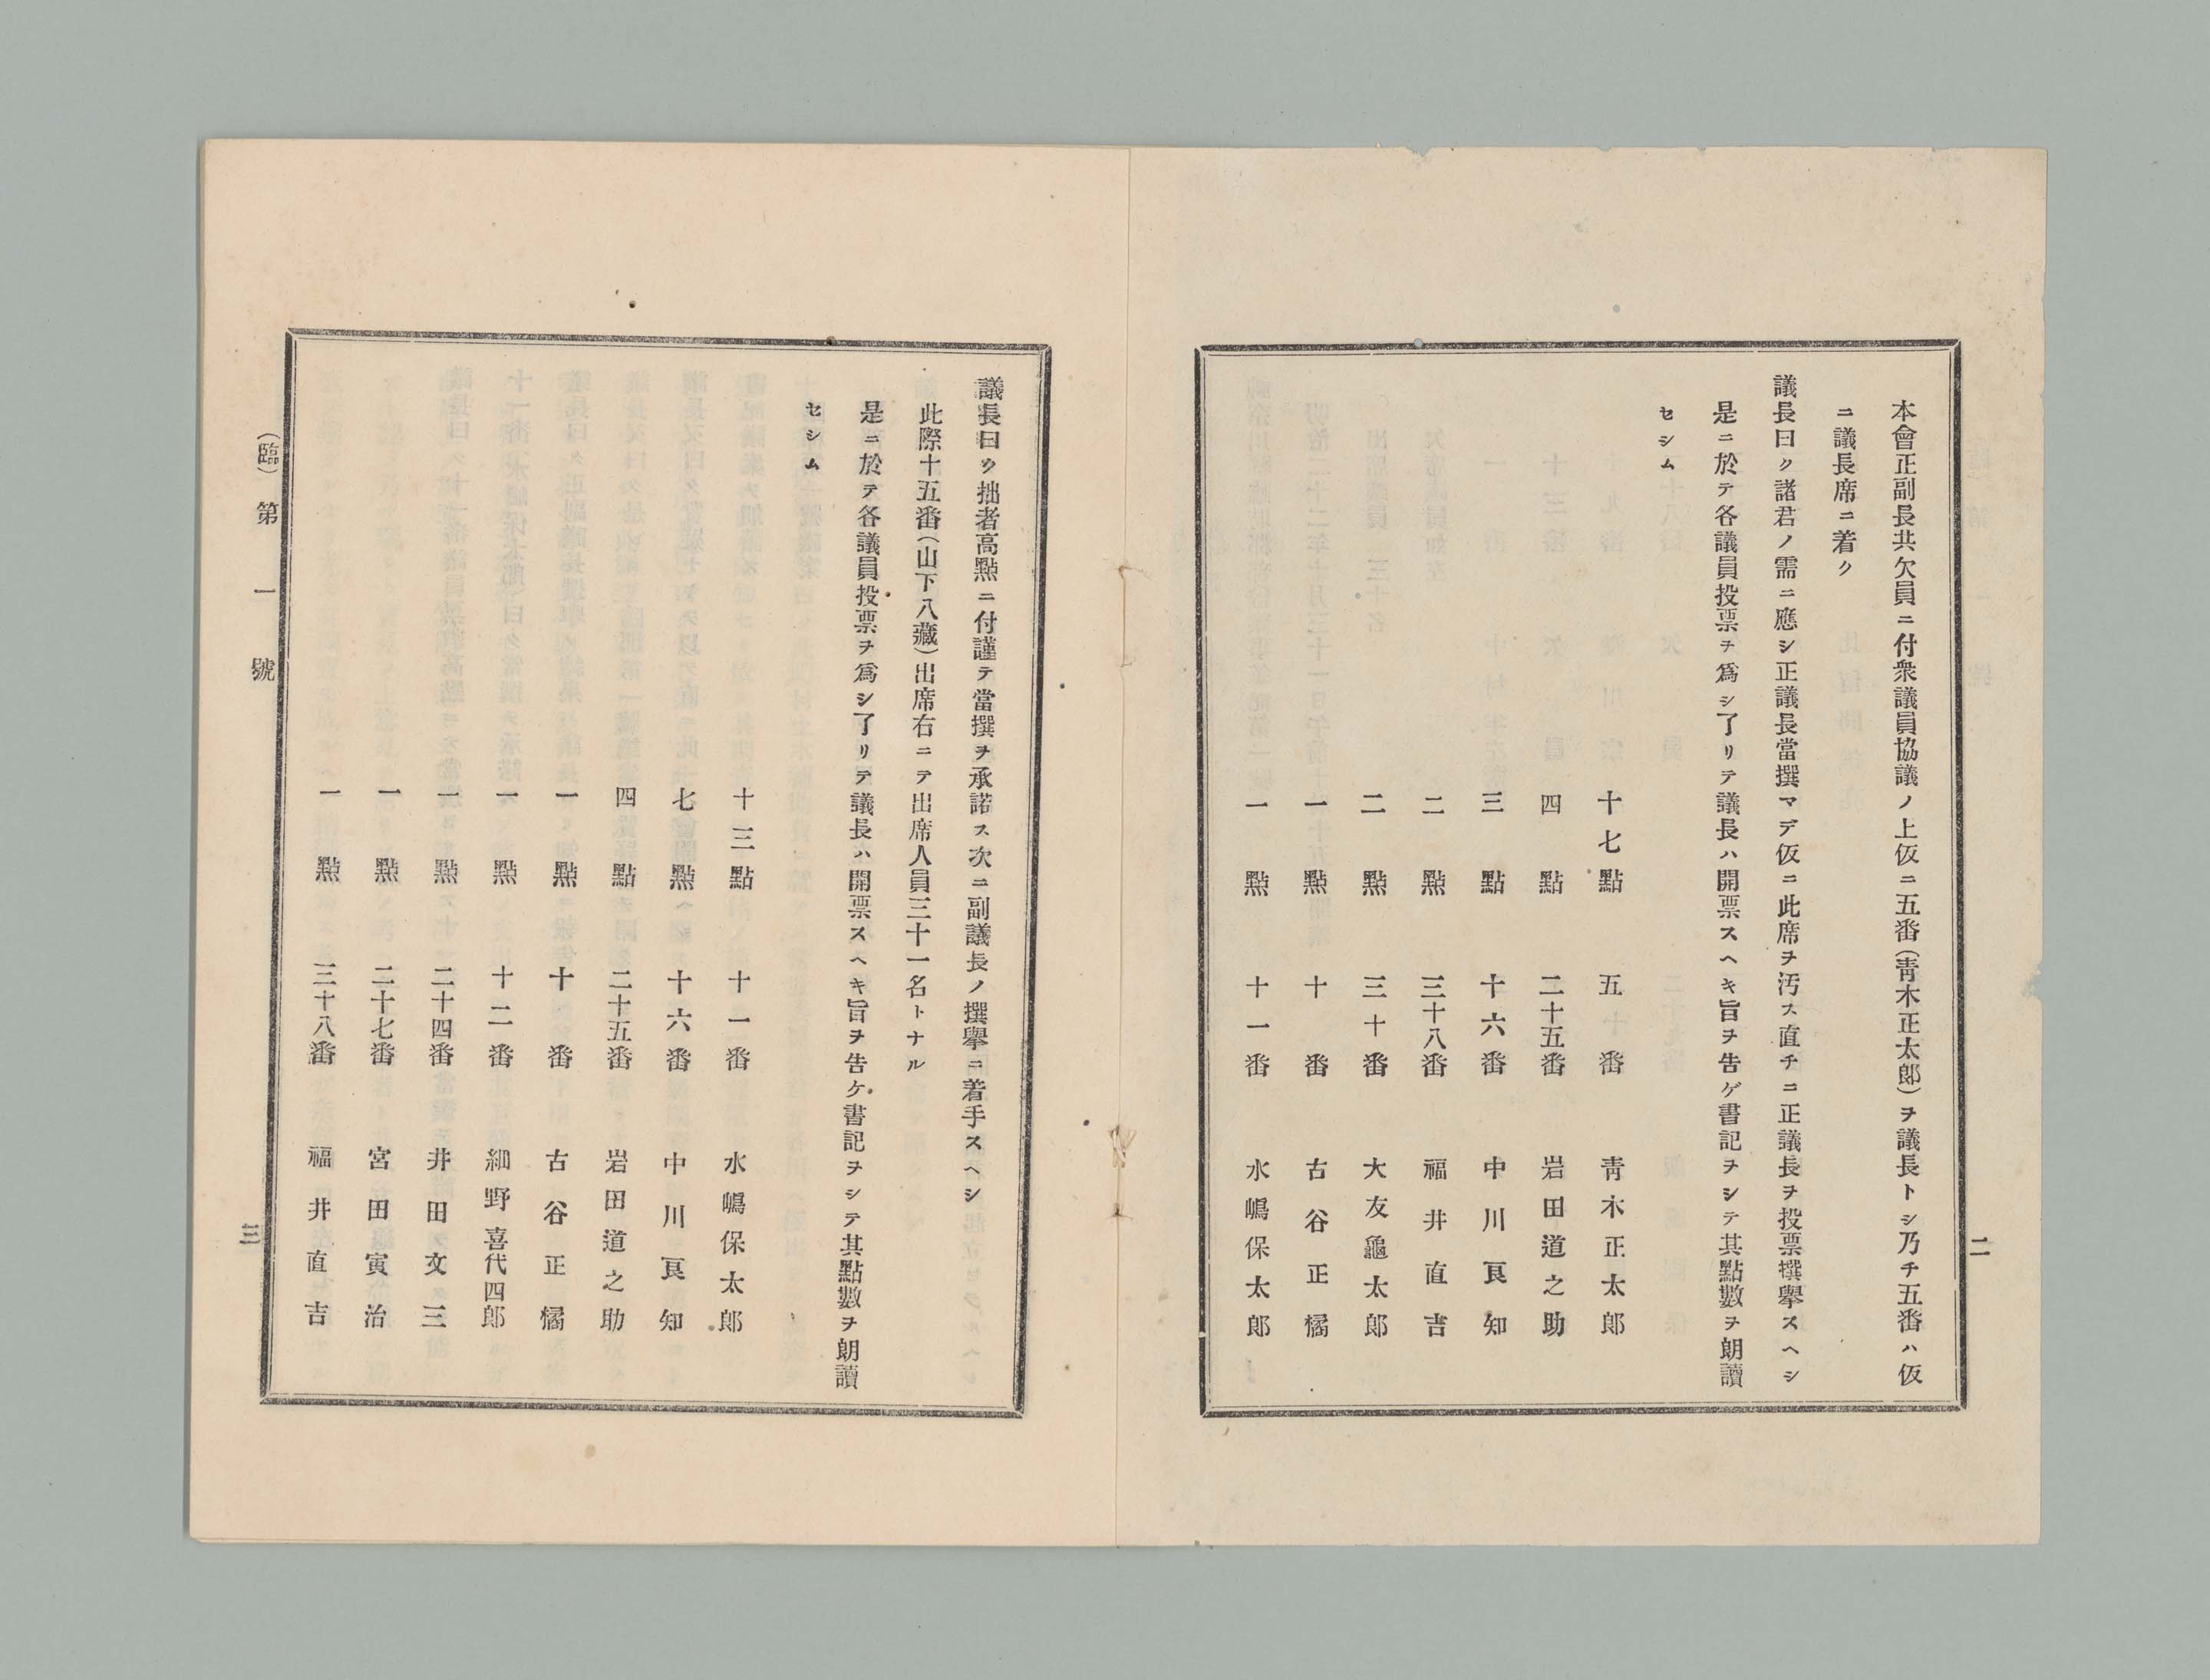 本會正副長共欠員ニ付衆議員協議ノ上仮ニ五番(靑木正太郎)ヲ議長トシ乃チ五番ハ仮
ニ議長席ニ着ク
議長曰ク諸君ノ需ニ應シ正議長當撰マデ仮ニ此席ヲ汚ス直チニ正議長ヲ投票撰擧スヘシ
是ニ於テ各議員投票ヲ爲シ了リテ議長ハ開票スヘキ旨ヲ告ゲ書記ヲシテ其點數ヲ朗讀
セシム
十七點 五十番 靑木正太郎
四點 二十五番 岩田道之助
三點 十六番 中川良知
二點 三十八番 福井直吉
二點 三十番 大友龜太郎
一點 十番 古谷正橘
一點 十一番 水嶋保太郎
二
議長曰ク拙者高點ニ付謹テ當撰ヲ承諾ス次ニ副議長ノ撰擧ニ着手スヘシ
此際十五番(山下八藏)出席右ニテ出席人員三十一名トナル
是ニ於テ各議員投票ヲ爲シ了リテ議長ハ開票スヘキ旨ヲ告ケ書記ヲシテ其點數ヲ朗讀
セシム
十三點 十一番 水嶋保太郎
七點 十六番 中川良知
四點 二十五番 岩田道之助
一點 十番 古谷正橘
一點 十二番 細野喜代四郎
一點 二十四番 井田文三
一點 二十七番 宮田寅治
一點 三十八番 福井直吉
(臨)第一號
三